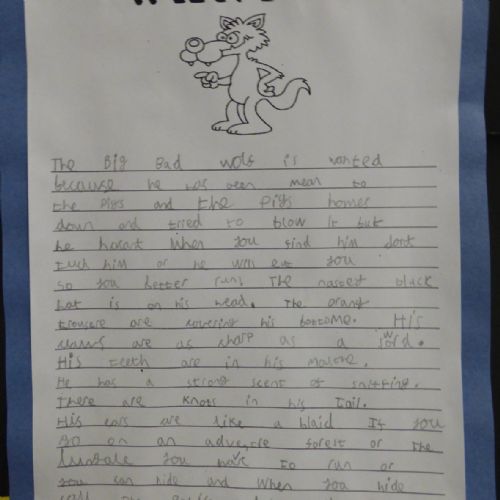 The Big Bad wolf is wanted
because he has been mean to
the Pigs and the Pigs homes
down and tried to blow it but
he hasant When you find him dont
tuch him or he will eat you
so you better run. The nastest black
hat is on his head. The orang
trousere are covering his bottome. His
are as sharp as a sword.
His teeth are in his
He has a strong scent of sniffing.
There are knots in his tail.
His ears are like a blaid If you
go on an forest or the
you to run or
you can hide and When you hide